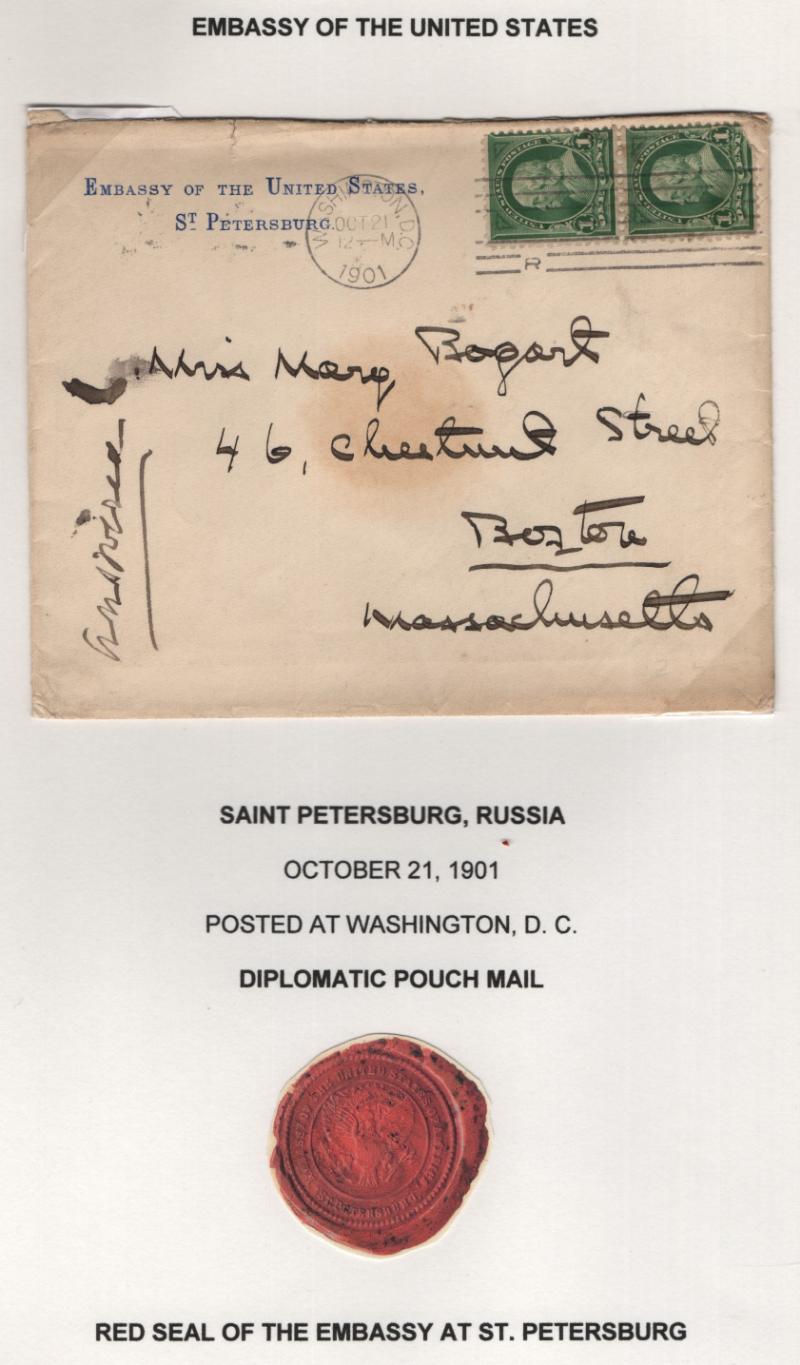 EMBASSY OF THE UNITED STATES
EMBASSY OF THE UNITED STATES,
ST PETERSBURG.
WASHINGTON, D.C.
OCT 21
12 - M
1901
1
1
1
1
R
Miss Mary Bogart
46, Chestnut Street
Boston
Massachusetts
answered
SAINT PETERSBURG, RUSSIA
OCTOBER 21, 1901
POSTED AT WASHINGTON, D. C.
DIPLOMATIC POUCH MAIL
EMBASSY OF THE UNITED STATES OF AMERICA
ST. PETERSBURG
RED SEAL OF THE EMBASSY AT ST. PETERSBURG